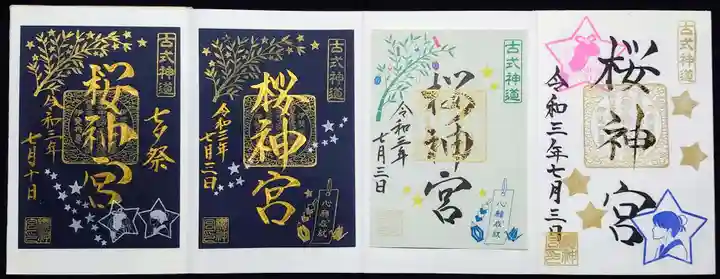 古式神道
桜神宮
七夕祭
令和三年
七月十日
古式神道
桜神宮
令和三年
七月三日
心願成就
古式神道
桜神宮
令和三年
七月三日
心願成就
古式神道
桜神宮
令和三年七月三日